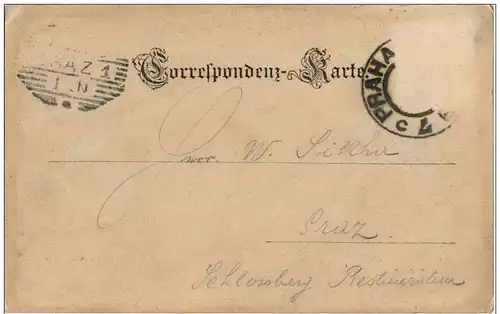 RAZ 1
I..N
Correspondenz-Karte
PRAHA
C 4
W. Sikha
Graz
Schlossberg Restauration